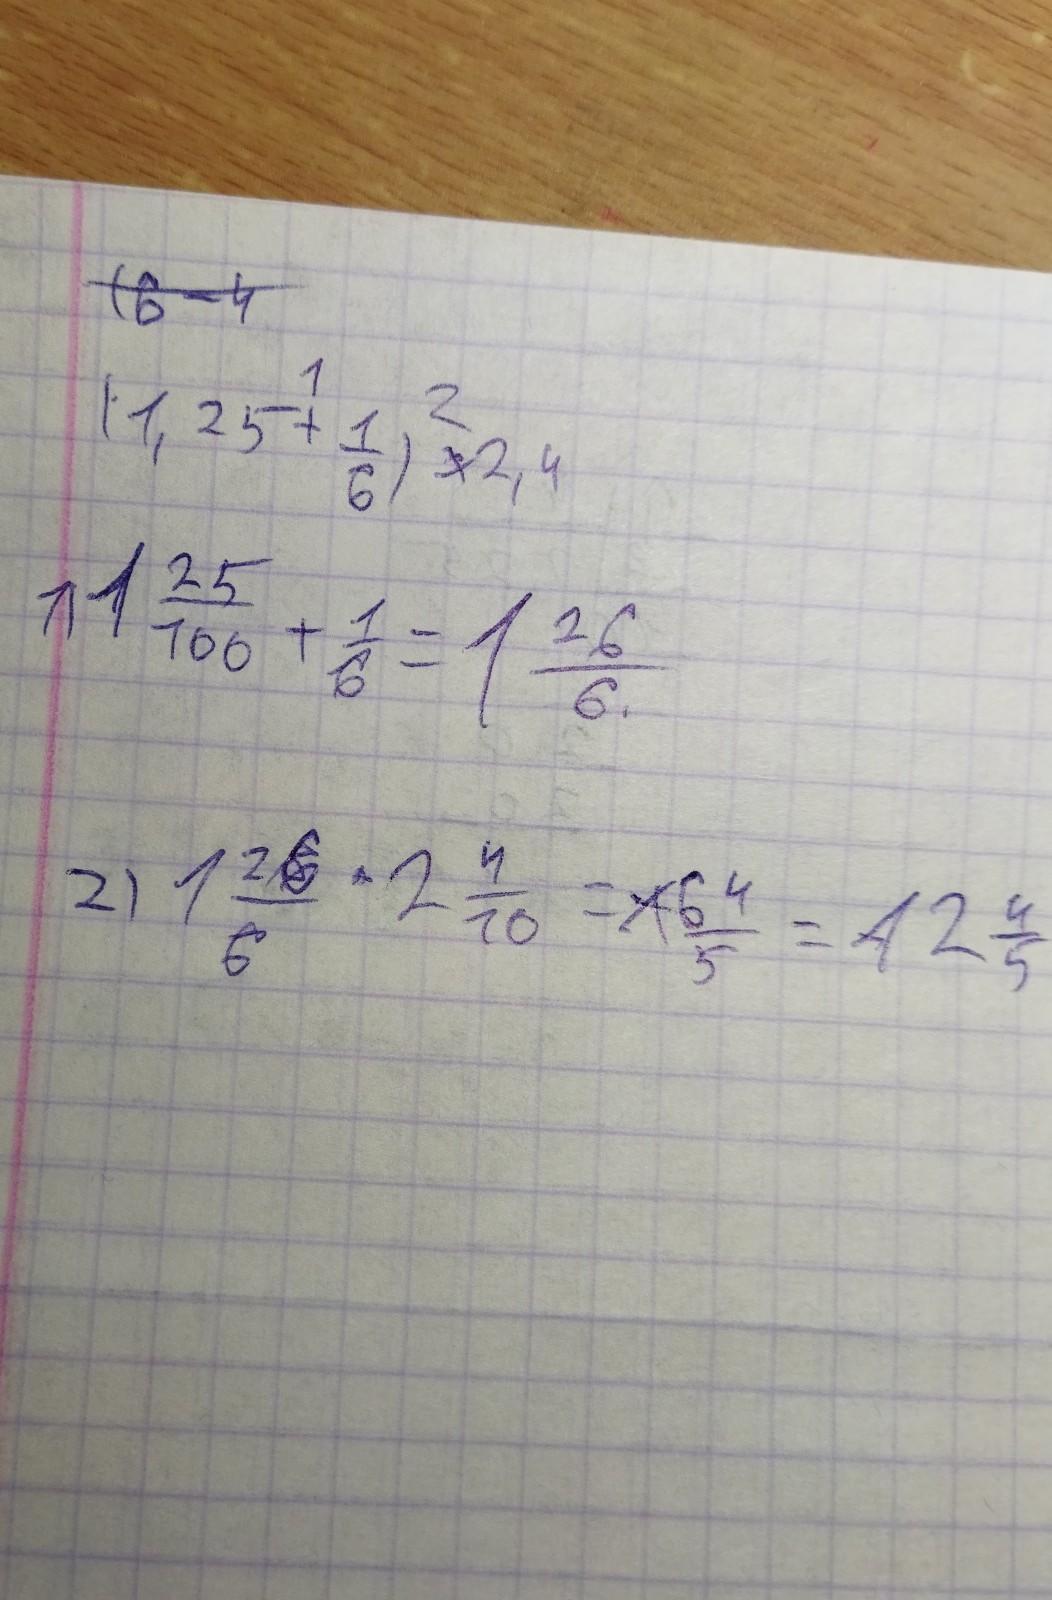 (6 - 4
(1,25 + 1/6) × 2,4
1) 1 25/100 + 1/6 = 1 26/6.
2) 1 26/6 · 2 4/10 = 64/5 = 12 4/5